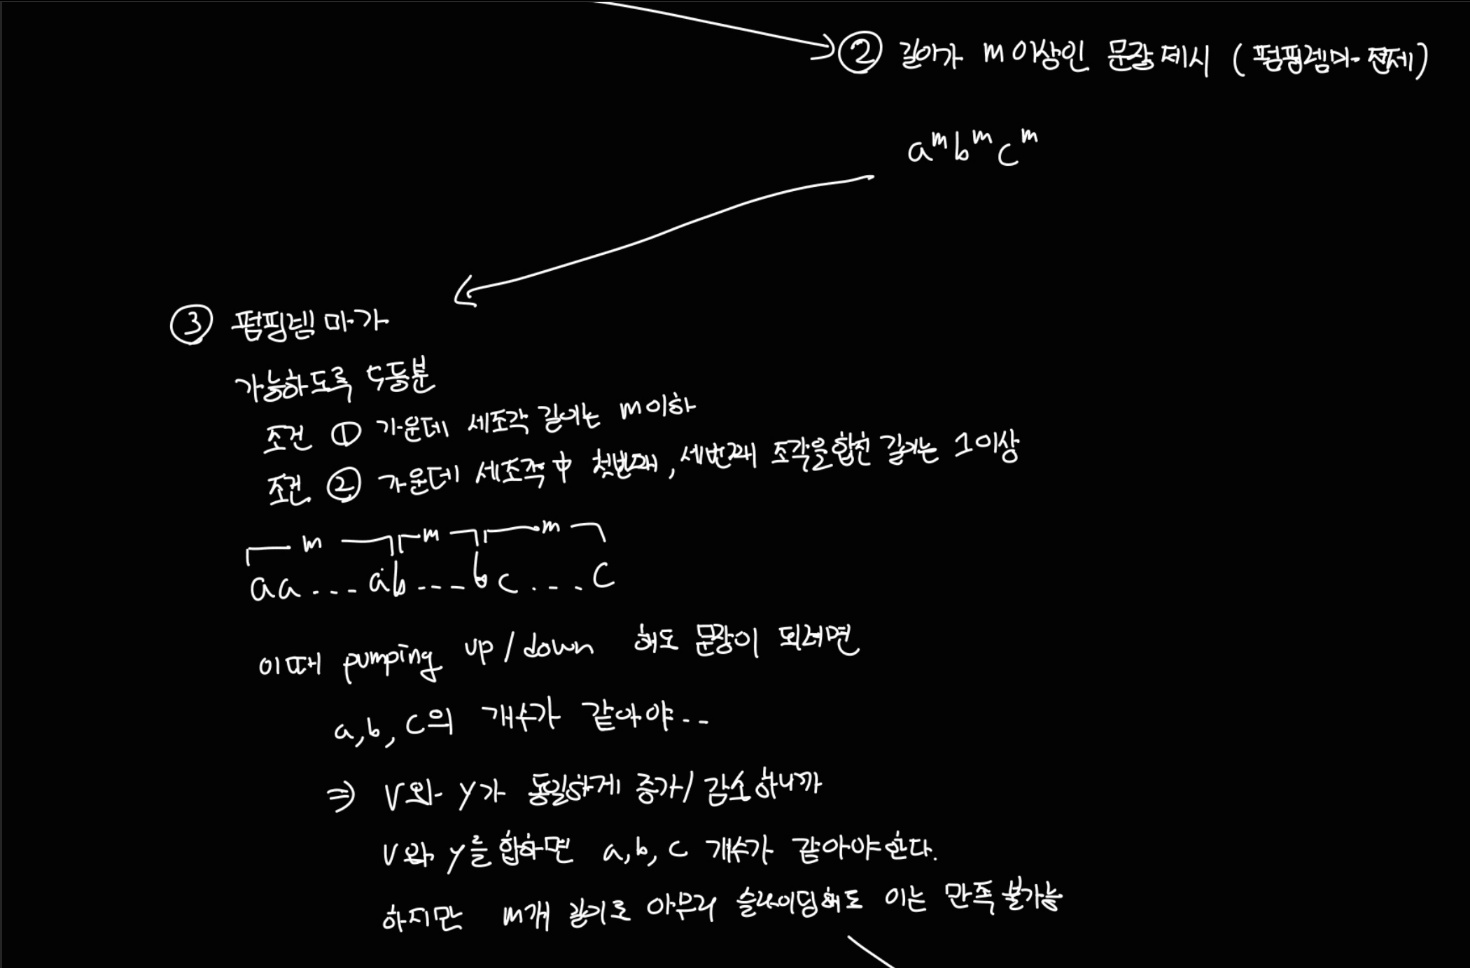 ② 길이가 m이상인 문장 제시 (펌핑렘마 전제)
aᵐbᵐcᵐ
③ 펌핑렘마가
가능하도록 5등분
조건 ① 가운데 세조각 길이는 m이하
조건 ② 가운데 세조각 中 첫번째, 세번째 조각을 합친 길이는 1이상
m m m
aa...ab...bc...c
이때 pumping up/down 해도 문장이 되려면
a,b,c의 개수가 같아야..
⇒ v와 y가 동일하게 증가/감소하니까
v와 y를 합하면 a,b,c 개수가 같아야한다.
하지만 m개 길이로 아무리 슬라이딩해도 이는 만족 불가능